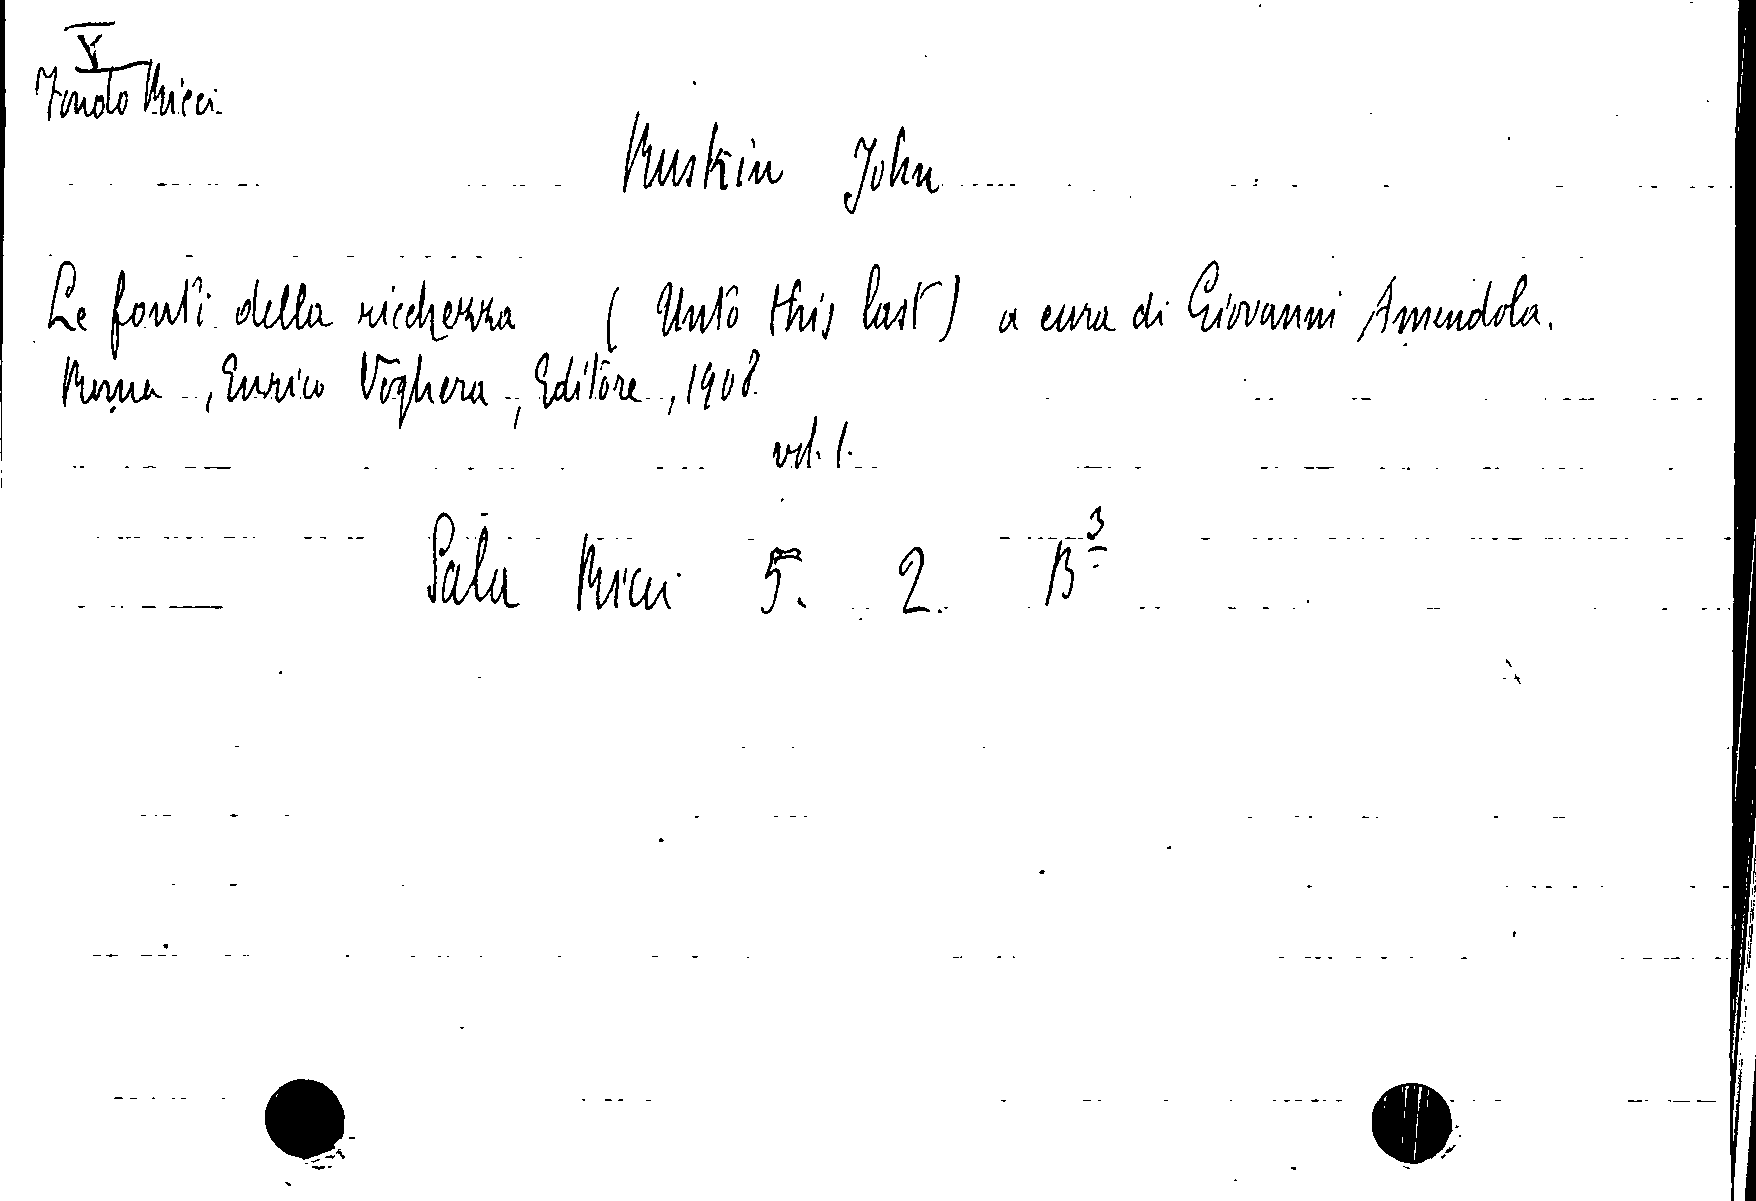 V
Fondo Ricci
Ruskin John
Le fonti della ricchezza ( Unto this last) a cura di Giovanni Amendola.
Roma , Enrico Voghera, Editore, 1908.
vol. 1.
Sala Ricci 5. 2. B³